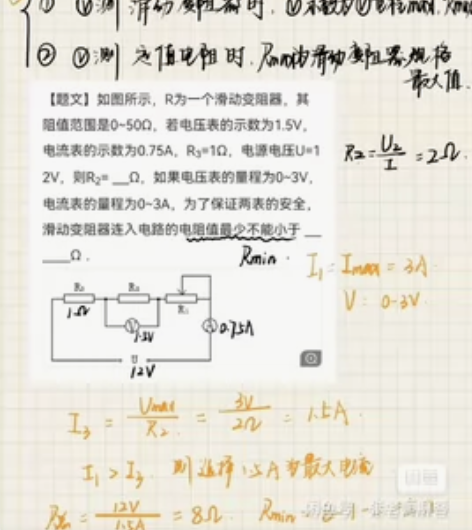 ① Ⓥ测 滑动变阻器时, Ⓥ示数为Ⓥ量程max, Rmax
② Ⓥ测 定值电阻时, Rmin为滑动变阻器规格
最大值.
【题文】如图所示，R为一个滑动变阻器，其
阻值范围是0~50Ω，若电压表的示数为1.5V，
电流表的示数为0.75A，R₃=1Ω，电源电压U=1
2V，则R₂=__Ω，如果电压表的量程为0~3V，
电流表的量程为0~3A，为了保证两表的安全，
滑动变阻器连入电路的电阻值最少不能小于__
___Ω．
R₂=U₂/I=2Ω.
Rmin.
I₁=Imax=3A
V: 0-3V
R₃ R₂
1Ω R₁
V 1.5V A 0.75A
U
12V
I₃=Umax/R₂=3V/2Ω=1.5A.
I₁>I₃. 则选择1.5A为最大电流
=12V/1.5A=8Ω. Rmin